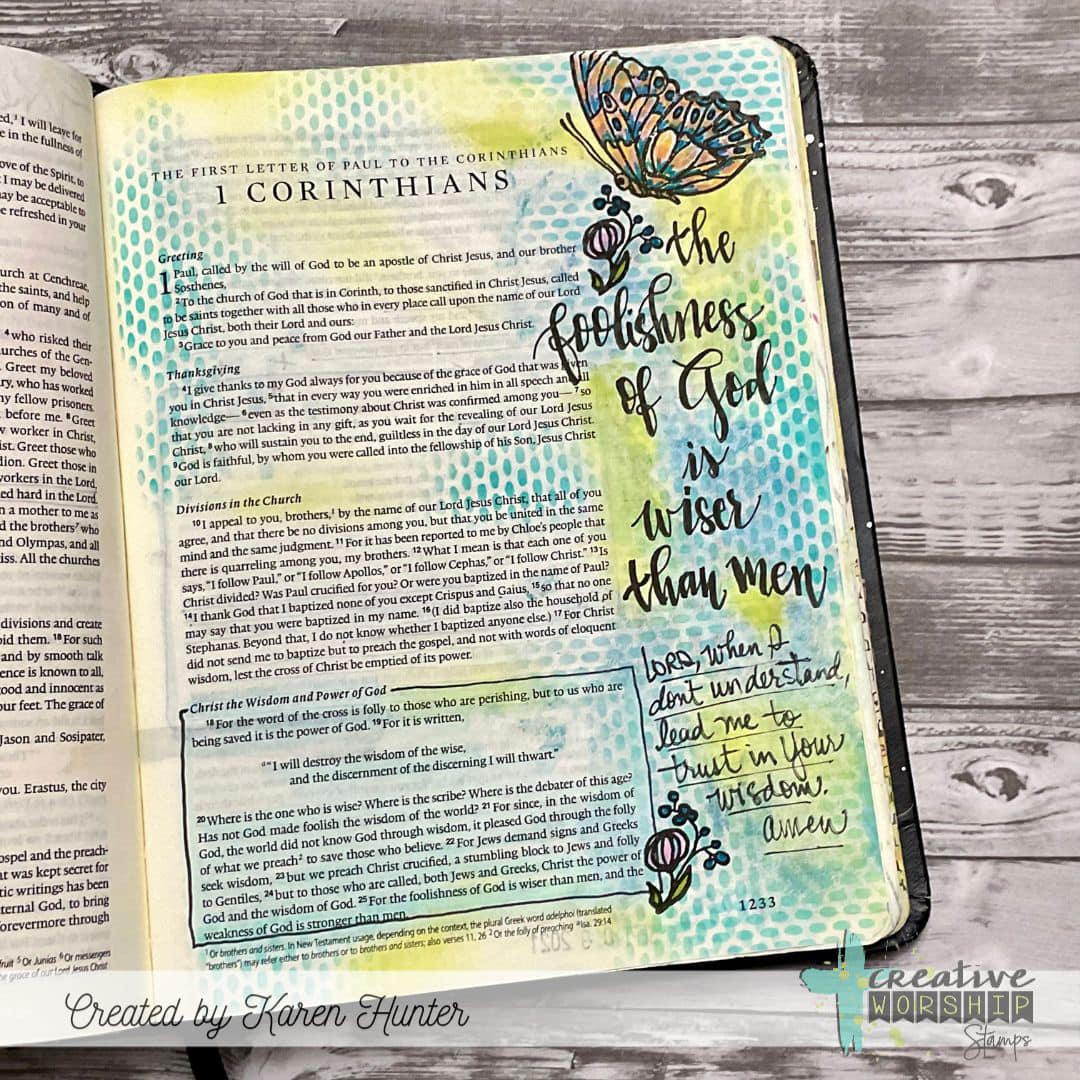 ed,³ I will leave for
e in the fullness of
ove of the Spirit, to
t I may be delivered
may be acceptable to
e refreshed in your
urch at Cenchreae,
the saints, and help
on of many and of
⁴ who risked their
urches of the Gen-
. Greet my beloved
ry, who has worked
my fellow prisoners.
t before me. ⁸ Greet
w worker in Christ,
ist. Greet those who
dion. Greet those in
workers in the Lord,
ed hard in the Lord.
n a mother to me as
d the brothers⁷ who
nd Olympas, and all
iss. All the churches
divisions and create
oid them. ¹⁸ For such
and by smooth talk
ence is known to all,
ood and innocent as
ur feet. The grace of
Jason and Sosipater,
you. Erastus, the city
ospel and the preach-
at was kept secret for
tic writings has been
ternal God, to bring
forevermore through
fruit ⁵ Or Junias ⁶ Or messengers
the grace of our Lord Jesus Christ
THE FIRST LETTER OF PAUL TO THE CORINTHIANS
1 CORINTHIANS
Greeting
1 Paul, called by the will of God to be an apostle of Christ Jesus, and our brother
Sosthenes,
² To the church of God that is in Corinth, to those sanctified in Christ Jesus, called
to be saints together with all those who in every place call upon the name of our Lord
Jesus Christ, both their Lord and ours:
³ Grace to you and peace from God our Father and the Lord Jesus Christ.
Thanksgiving
⁴ I give thanks to my God always for you because of the grace of God that was given
you in Christ Jesus, ⁵ that in every way you were enriched in him in all speech and all
knowledge— ⁶ even as the testimony about Christ was confirmed among you— ⁷ so
that you are not lacking in any gift, as you wait for the revealing of our Lord Jesus
Christ, ⁸ who will sustain you to the end, guiltless in the day of our Lord Jesus Christ.
⁹ God is faithful, by whom you were called into the fellowship of his Son, Jesus Christ
our Lord.
Divisions in the Church
¹⁰ I appeal to you, brothers,¹ by the name of our Lord Jesus Christ, that all of you
agree, and that there be no divisions among you, but that you be united in the same
mind and the same judgment. ¹¹ For it has been reported to me by Chloe's people that
there is quarreling among you, my brothers. ¹² What I mean is that each one of you
says, "I follow Paul," or "I follow Apollos," or "I follow Cephas," or "I follow Christ." ¹³ Is
Christ divided? Was Paul crucified for you? Or were you baptized in the name of Paul?
¹⁴ I thank God that I baptized none of you except Crispus and Gaius, ¹⁵ so that no one
may say that you were baptized in my name. ¹⁶ (I did baptize also the household of
Stephanas. Beyond that, I do not know whether I baptized anyone else.) ¹⁷ For Christ
did not send me to baptize but to preach the gospel, and not with words of eloquent
wisdom, lest the cross of Christ be emptied of its power.
Christ the Wisdom and Power of God
¹⁸ For the word of the cross is folly to those who are perishing, but to us who are
being saved it is the power of God. ¹⁹ For it is written,
ᵃ "I will destroy the wisdom of the wise,
and the discernment of the discerning I will thwart."
²⁰ Where is the one who is wise? Where is the scribe? Where is the debater of this age?
Has not God made foolish the wisdom of the world? ²¹ For since, in the wisdom of
God, the world did not know God through wisdom, it pleased God through the folly
of what we preach² to save those who believe. ²² For Jews demand signs and Greeks
seek wisdom, ²³ but we preach Christ crucified, a stumbling block to Jews and folly
to Gentiles, ²⁴ but to those who are called, both Jews and Greeks, Christ the power of
God and the wisdom of God. ²⁵ For the foolishness of God is wiser than men, and the
weakness of God is stronger than men.
¹ Or brothers and sisters. In New Testament usage, depending on the context, the plural Greek word adelphoi (translated
"brothers") may refer either to brothers or to brothers and sisters; also verses 11, 26 ² Or the folly of preaching ᵃ Isa. 29:14
1233
the
foolishness
of God
is
wiser
than men
LORD, when I
don't understand,
lead me to
trust in Your
wisdom.
amen
Created by Karen Hunter
creative
WORSHIP
Stamps